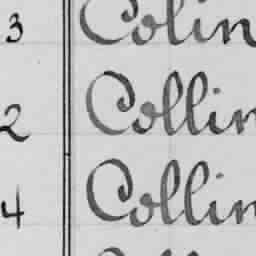 3 Colin
2 Collin
4 Collin